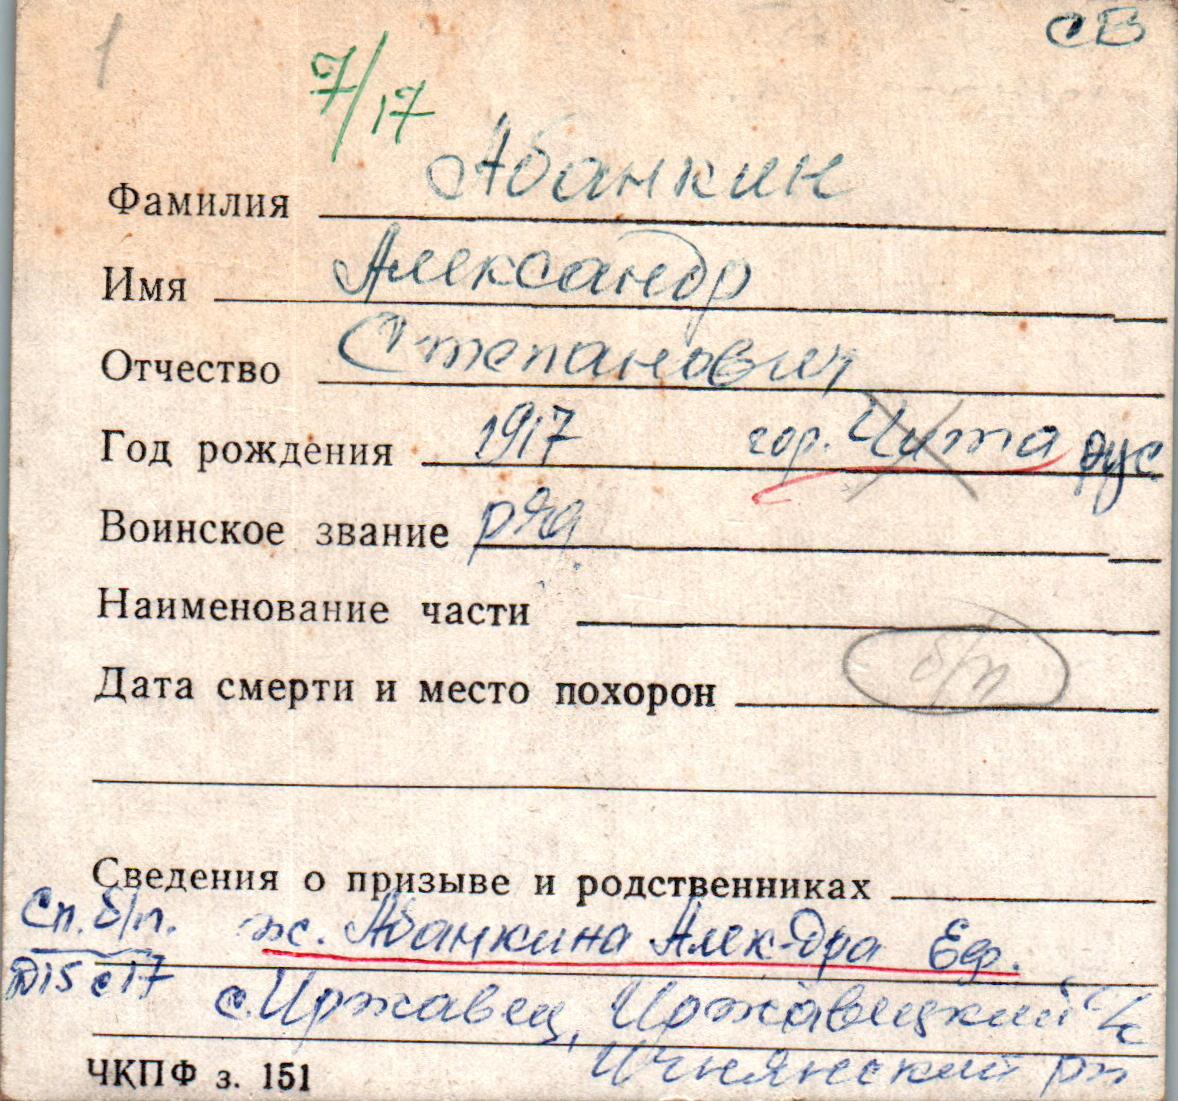 1
СВ
7/17
Фамилия Абанкин
Имя Александр
Отчество Степанович
Год рождения 1917 гор. Чита рус
Воинское звание ряд
Наименование части
Дата смерти и место похорон б/п
Сведения о призыве и родственниках
Сп. б/п. ж. Абанкина Алек-дра Еф.
D15 с 17 с. Иржавец, Иржавецкий с/с
ЧКПФ з. 151 Ичнянский рн